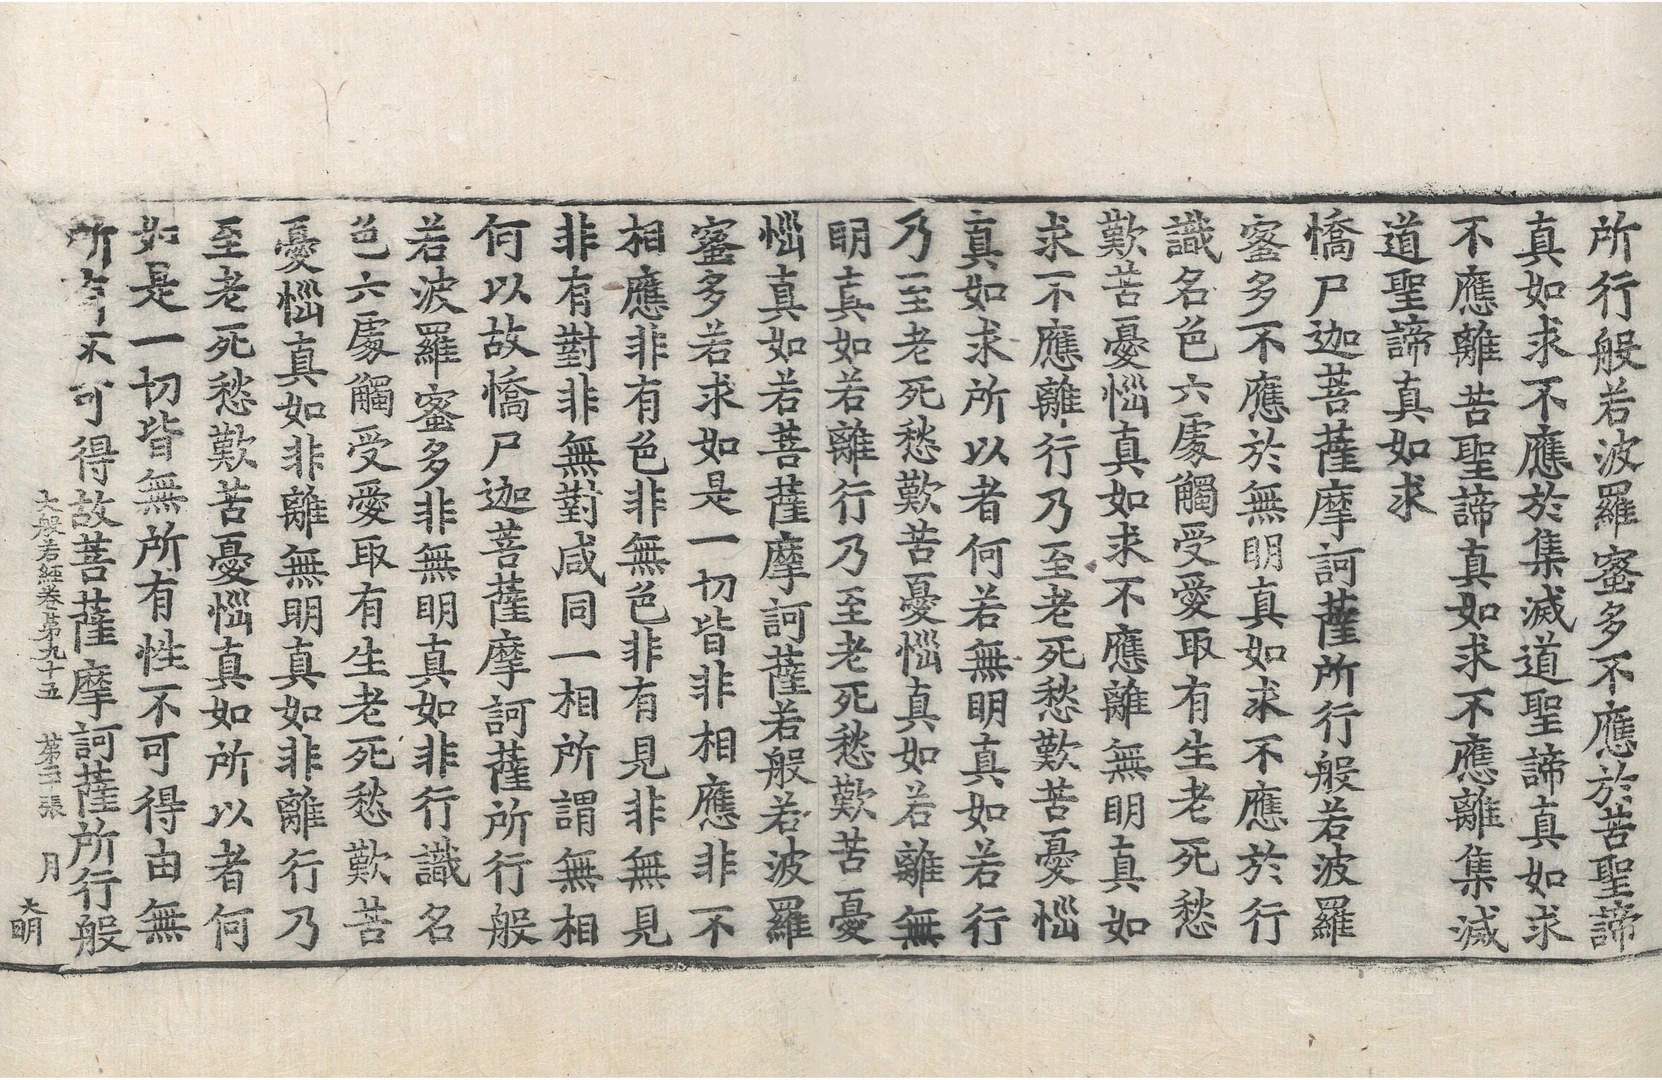 所行般若波羅蜜多不應於苦聖諦
真如求不應於集滅道聖諦真如求
不應離苦聖諦真如求不應離集滅
道聖諦真如求
憍尸迦菩薩摩訶薩所行般若波羅
蜜多不應於無明真如求不應於行
識名色六處觸受愛取有生老死愁
歎苦憂惱真如求不應離無明真如
求不應離行乃至老死愁歎苦憂惱
真如求所以者何若無明真如若行
乃至老死愁歎苦憂惱真如若離無
明真如若離行乃至老死愁歎苦憂
惱真如若菩薩摩訶薩若般若波羅
蜜多若求如是一切皆非相應非不
相應非有色非無色非有見非無見
非有對非無對咸同一相所謂無相
何以故憍尸迦菩薩摩訶薩所行般
若波羅蜜多非無明真如非行識名
色六處觸受愛取有生老死愁歎苦
憂惱真如非離無明真如非離行乃
至老死愁歎苦憂惱真如所以者何
如是一切皆無所有性不可得由無
所有不可得故菩薩摩訶薩所行般
大般若經卷第九十五 第三張 月 大明